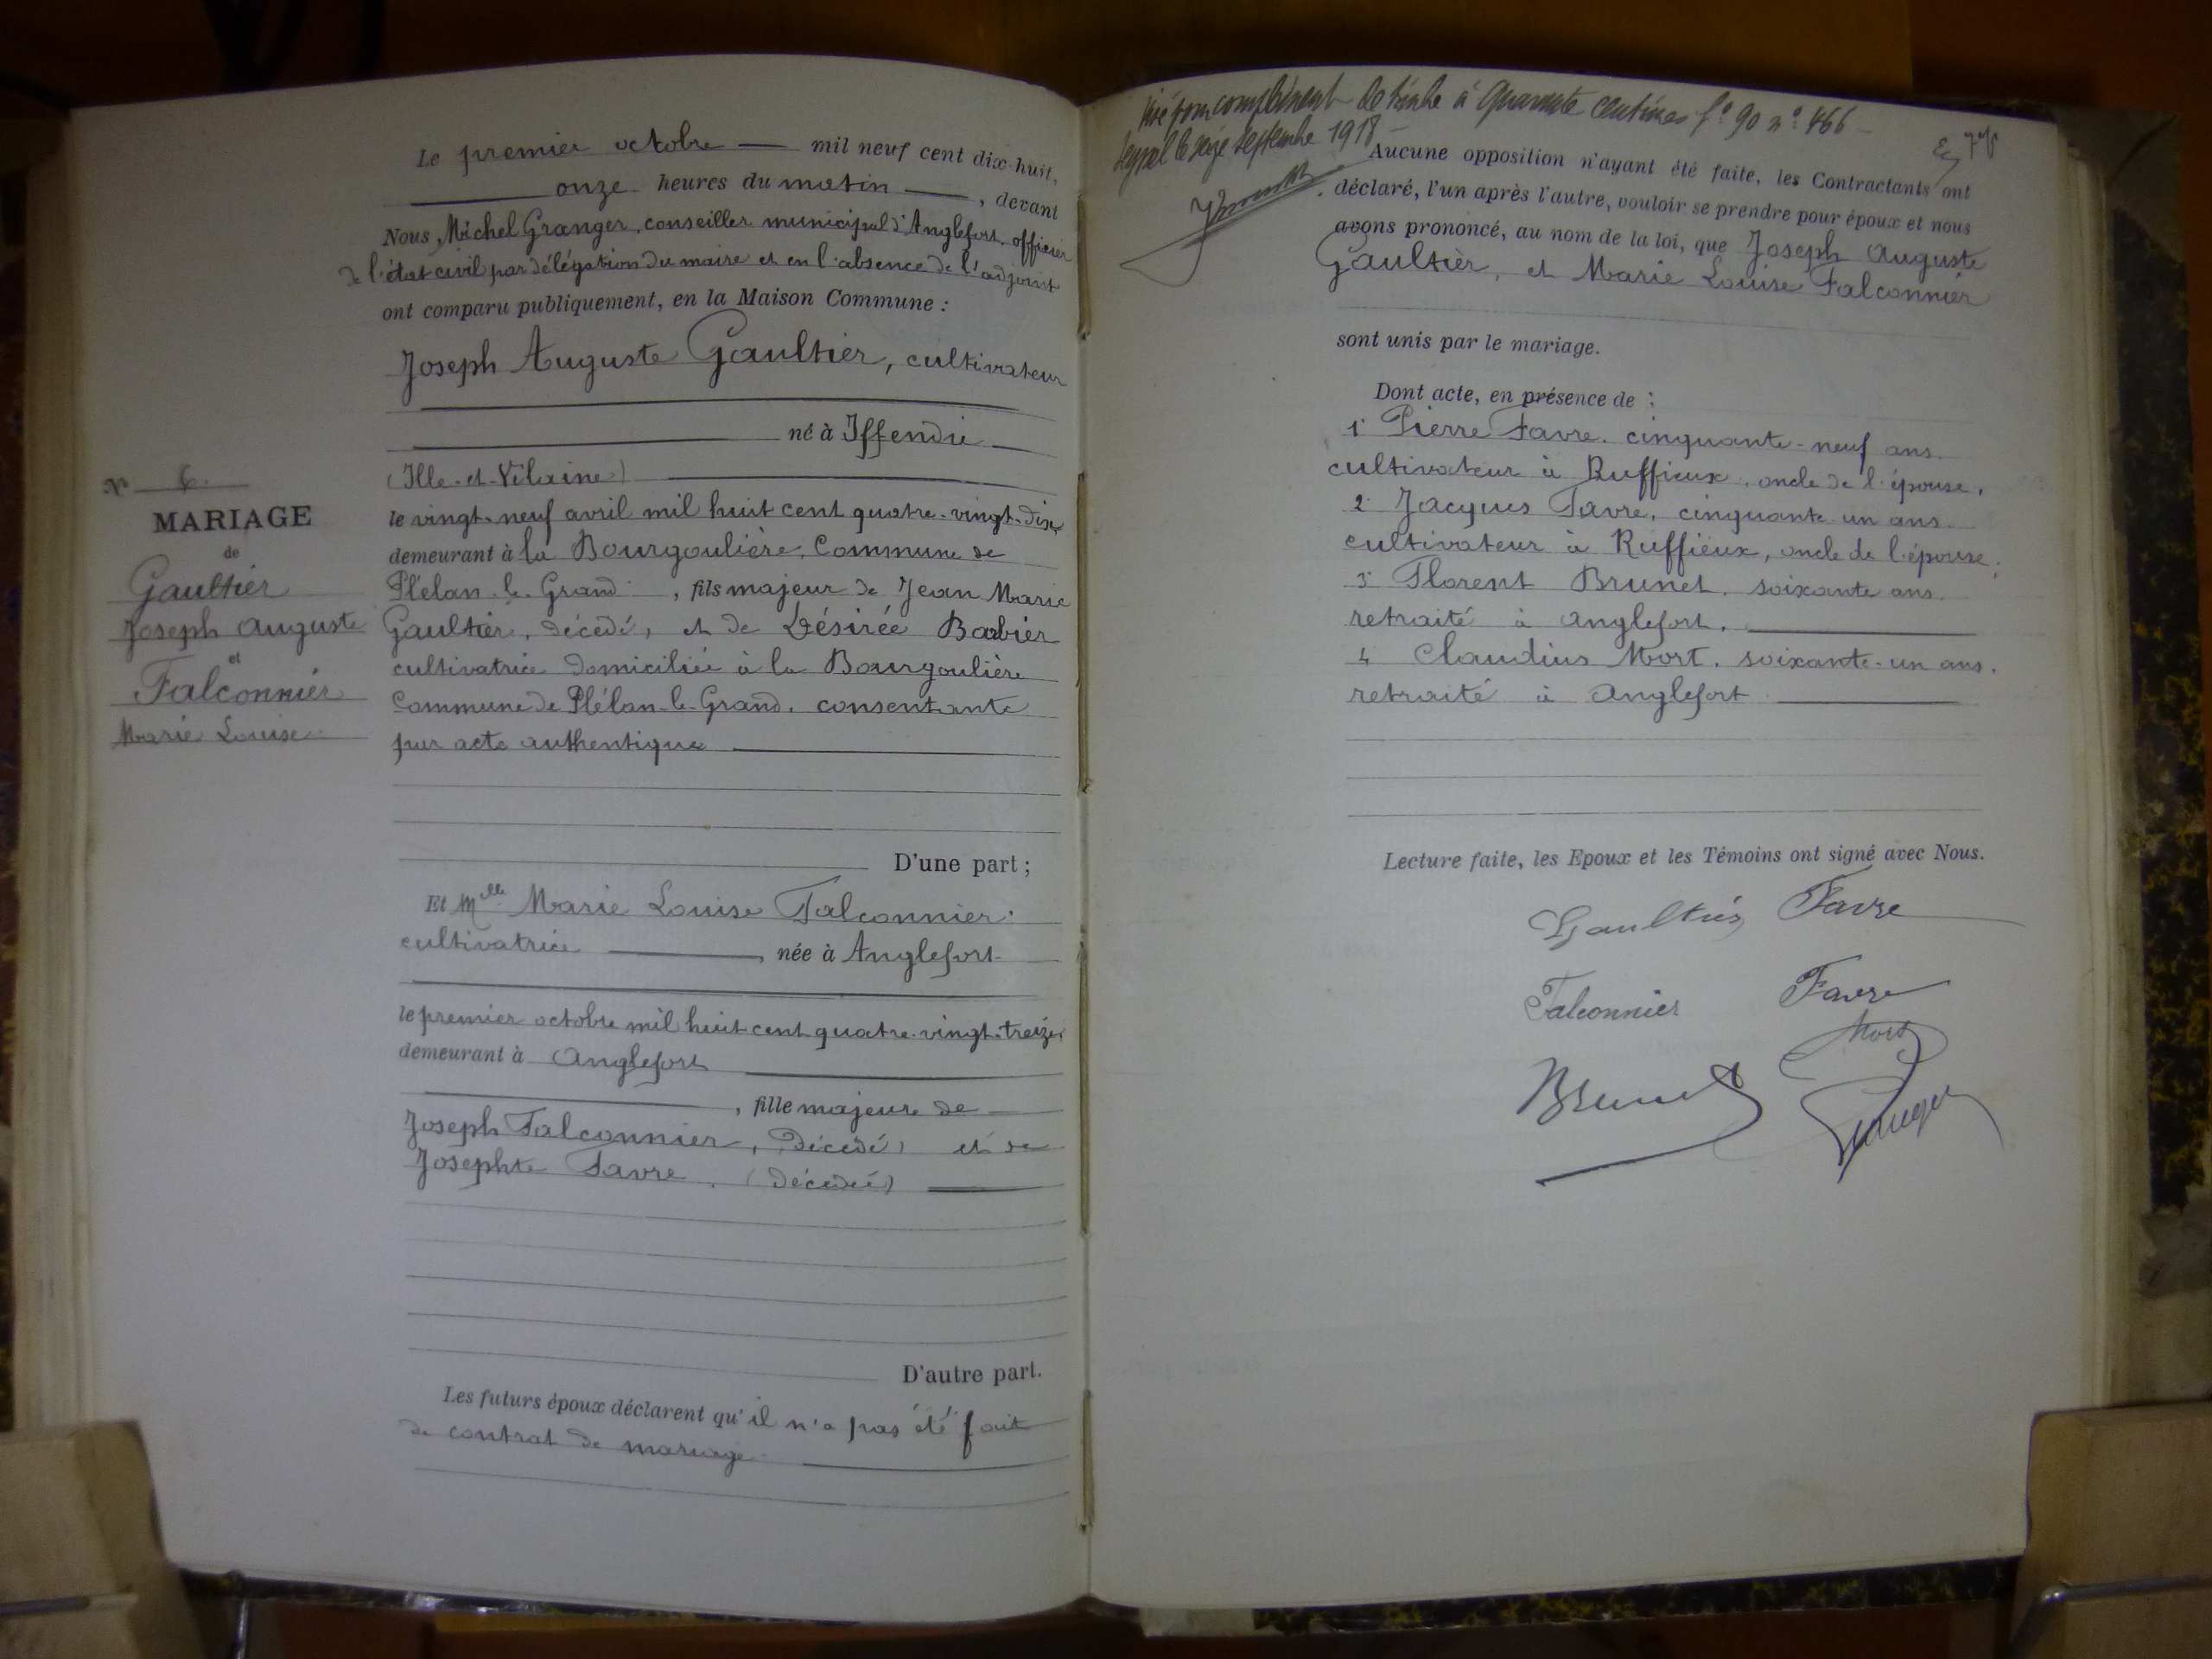 Le premier octobre mil neuf cent dix-huit,
onze heures du matin, devant
Nous, Michel Granger, conseiller municipal d'Anglefort, officier
de l'état civil par délégation du maire et en l'absence de l'adjoint
ont comparu publiquement, en la Maison Commune :
Joseph Auguste Gaultier, cultivateur
né à Iffendic
(Ille-et-Vilaine)
le vingt-neuf avril mil huit cent quatre-vingt-dix
demeurant à la Bourgoulière, Commune de
Plélan-le-Grand, fils majeur de Jean Marie
Gaultier, décédé, et de Désirée Barbier
cultivatrice domiciliée à la Bourgoulière
Commune de Plélan-le-Grand, consentante
par acte authentique
D'une part ;
N° 6.
MARIAGE
de
Gaultier
Joseph Auguste
et
Falconnier
Marie Louise
Et Mlle Marie Louise Falconnier
cultivatrice, née à Anglefort
le premier octobre mil huit cent quatre-vingt-treize,
demeurant à Anglefort
, fille majeure de
Joseph Falconnier, (décédé) et de
Josephte Favre, (décédée)
D'autre part.
Les futurs époux déclarent qu'il n'a pas été fait
de contrat de mariage
Visé pour complément de timbre à quarante centimes f° 90 n° 466
Seyssel le seize septembre 1918
Aucune opposition n'ayant été faite, les Contractants ont
déclaré, l'un après l'autre, vouloir se prendre pour époux et nous
avons prononcé, au nom de la loi, que Joseph Auguste
Gaultier, et Marie Louise Falconnier
sont unis par le mariage.
Dont acte, en présence de :
1° Pierre Favre, cinquante-neuf ans.
cultivateur à Ruffieux, oncle de l'épouse,
2° Jacques Favre, cinquante-un ans.
cultivateur à Ruffieux, oncle de l'épouse,
3° Florent Brunet, soixante ans.
retraité à Anglefort.
4 Claudius Mort, soixante-un ans.
retraité à Anglefort
Lecture faite, les Epoux et les Témoins ont signé avec Nous.
Gaultier Favre
Falconnier Favre
Mort
Brunet Granger